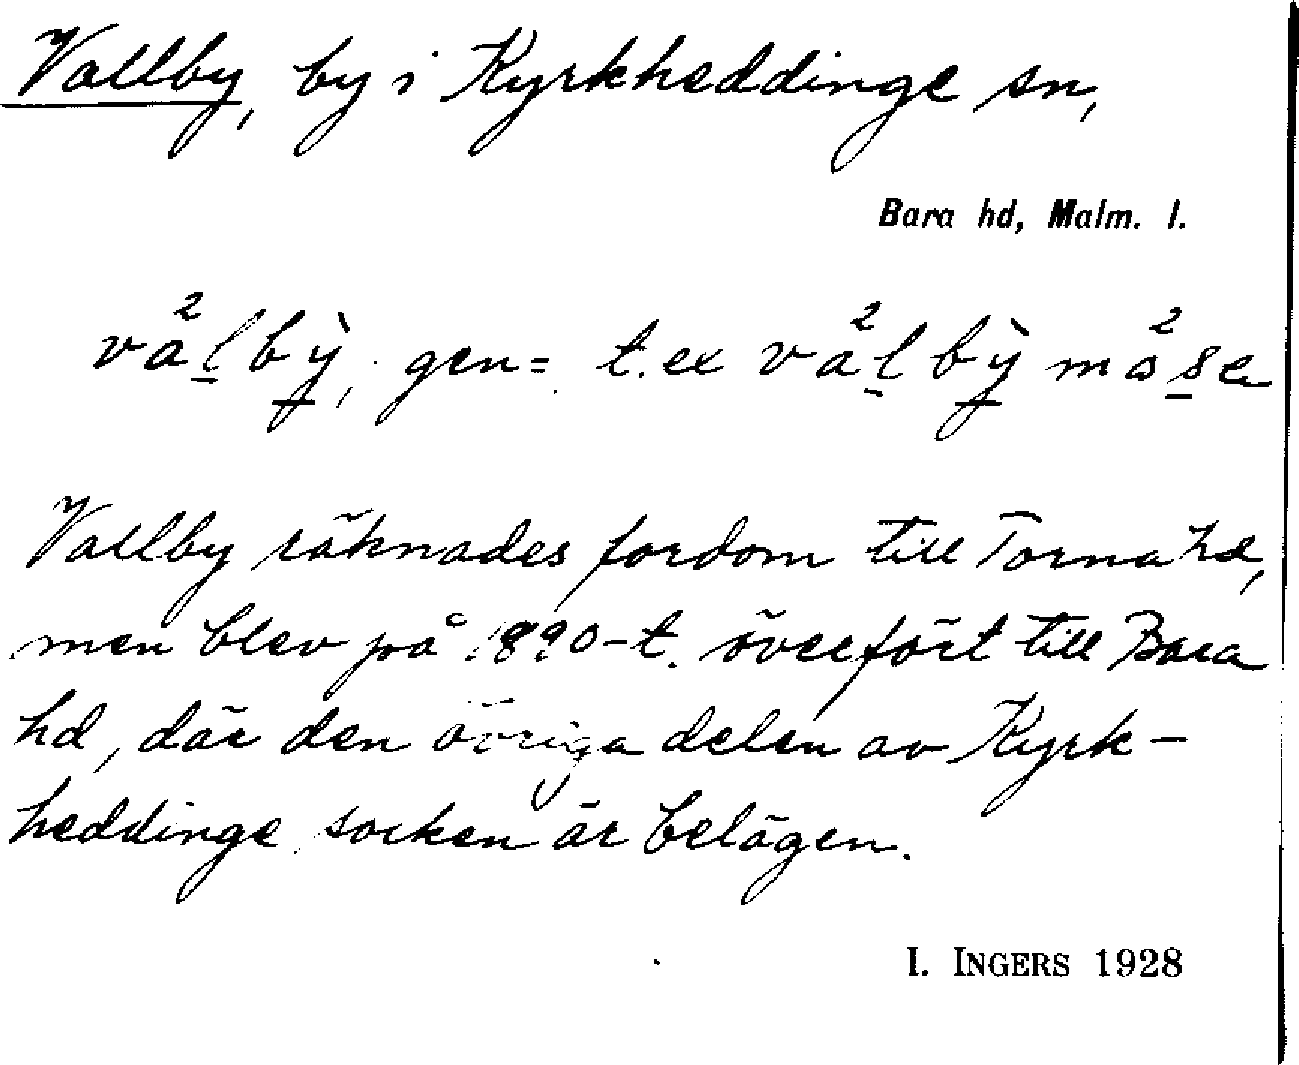 Vallby, by i Kyrkheddinge sn,
Bara hd, Malm. l.
vå²lbỳ, gen= t.ex vå²lbỳ må²se
Vallby räknades fordom till Torna hd,
men blev på 1890-t. överfört till Bara
hd, där den övriga delen av Kyrk-
heddinge socken är belägen.
I. INGERS 1928